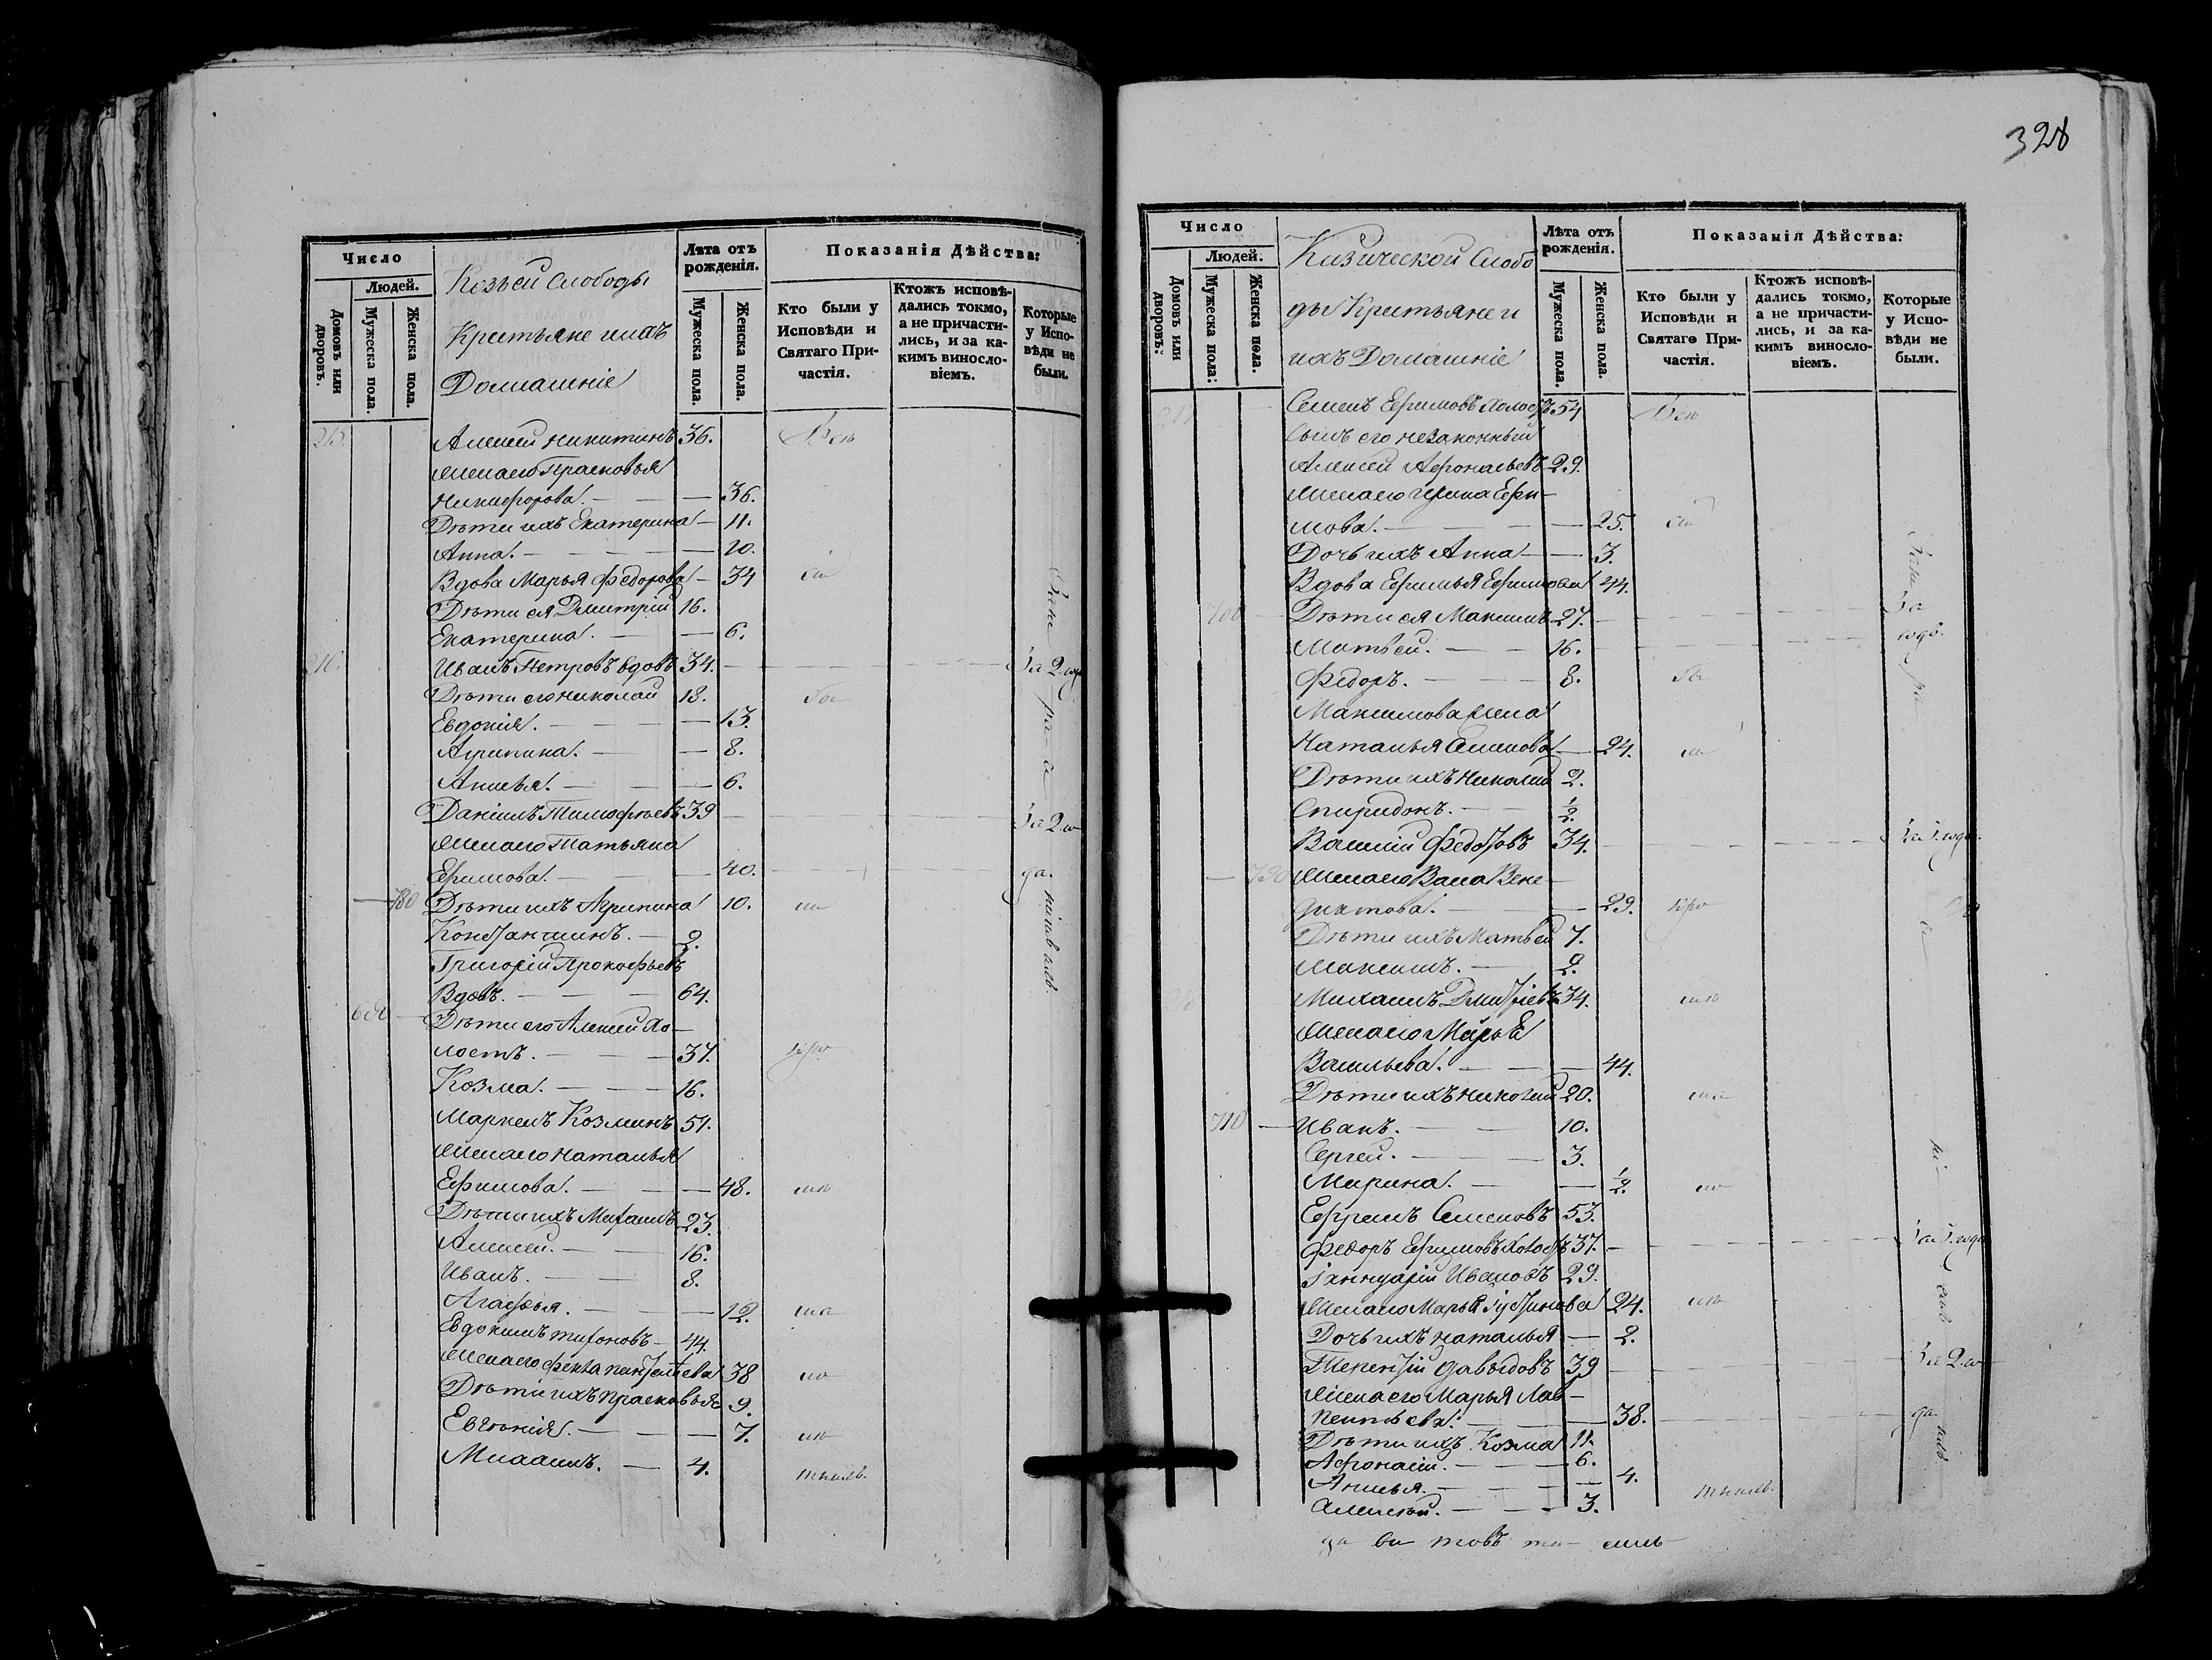 Число
Людей.
Домовъ или дворовъ.
Мужеска пола.
Женска пола.
Козьей Слободы
Крестьяне и ихъ
Домашніе
Лѣта отъ рожденія.
Мужеска пола.
Женска пола.
Показанія Дѣйства:
Кто были у Исповѣди и Святаго Причастія.
Ктожъ исповѣдались токмо, а не причастились, и за какимъ винословіемъ.
Которые у Исповѣди не были.
215. Алексей Никитинъ 36.
Жена его Прасковья
Никифорова. — 36.
Дѣти ихъ Екатерина — 11.
Анна. — 10.
Вдова Марья Федорова — 34
Дѣти ея Дмитрій 16.
Екатерина. — 6.
216. Иванъ Петровъ вдовъ 34. — За 2
Дѣти его Николай 18.
Евдокія. — 13.
Агрипина. — 8.
Анисья. — 6.
Даніилъ Тимофѣевъ 39 — За 2
Жена его Татьяна
Ефимова. — 40.
780 Дѣти ихъ Агрипина 10.
Константинъ. — 2.
Григорій Прокофьевъ
Вдовъ. — 64.
Дѣти его Алексей Хо-
лостъ. — 37.
Козма. — 16.
Маркелъ Козминъ 51.
Жена его Наталья
Ефимова. — 48.
Дѣти ихъ Михаилъ 23.
Алексей. — 16.
Иванъ. — 8.
Агафья. — 12.
Евдокимъ Тихоновъ — 44.
Жена его Фекла 38
Дѣти ихъ Прасковья 9.
Евгенія. — 7.
Михаилъ. — 4.
328
Число
Людей.
Домовъ или дворовъ:
Мужеска пола:
Женска пола.
Кизической Слобо
ды Крестьяне и
ихъ Домашніе
Лѣта отъ рожденія.
Мужеска пола.
Женска пола.
Показанія Дѣйства:
Кто были у Исповѣди и Святаго Причастія.
Ктожъ исповѣдались токмо, а не причастились, и за какимъ винословіемъ.
Которые у Исповѣди не были.
Семенъ Ефимовъ Холостъ 54
Сынъ его незаконный
Алексей Афонасьевъ 29.
Жена его Ирина Ефи-
мова. — 25.
Дочь ихъ Анна — 3.
Вдова Ефимья Ефимова 44.
700 Дѣти ея Максимъ 27. — За
Матвей. — 16. — годъ.
Федоръ. — 8.
Максимова жена
Наталья Семенова — 24.
Дѣти ихъ Николай 2.
Спиридонъ. — 1/2.
Василій Федотовъ 34. — годъ.
790 Жена его Васа Вене-
диктова. — 29.
Дѣти ихъ Матвей 7.
Максимъ. — 2.
Михаилъ Дмитріевъ 34.
Жена его Марья
Васильева. — 44.
Дѣти ихъ Николай 20.
710 Иванъ. — 10.
Сергей. — 3.
Марина. — 1/2.
Ефремъ Семеновъ 53.
Федоръ Ефимовъ Холостъ 37.
Іаннуарій Ивановъ 29.
Жена его Марья Іустинова 24.
Дочь ихъ Наталья — 2.
Терентій Давыдовъ 39 — За 2
Жена его Марья Лав-
рентьева. — 38. — да.
Дѣти ихъ Козма 11.
Афонасій. — 6.
Анисья. — 4.
Алексей. — 3.